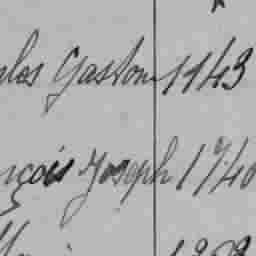 les Gaston 1143
nçois Joseph 1740